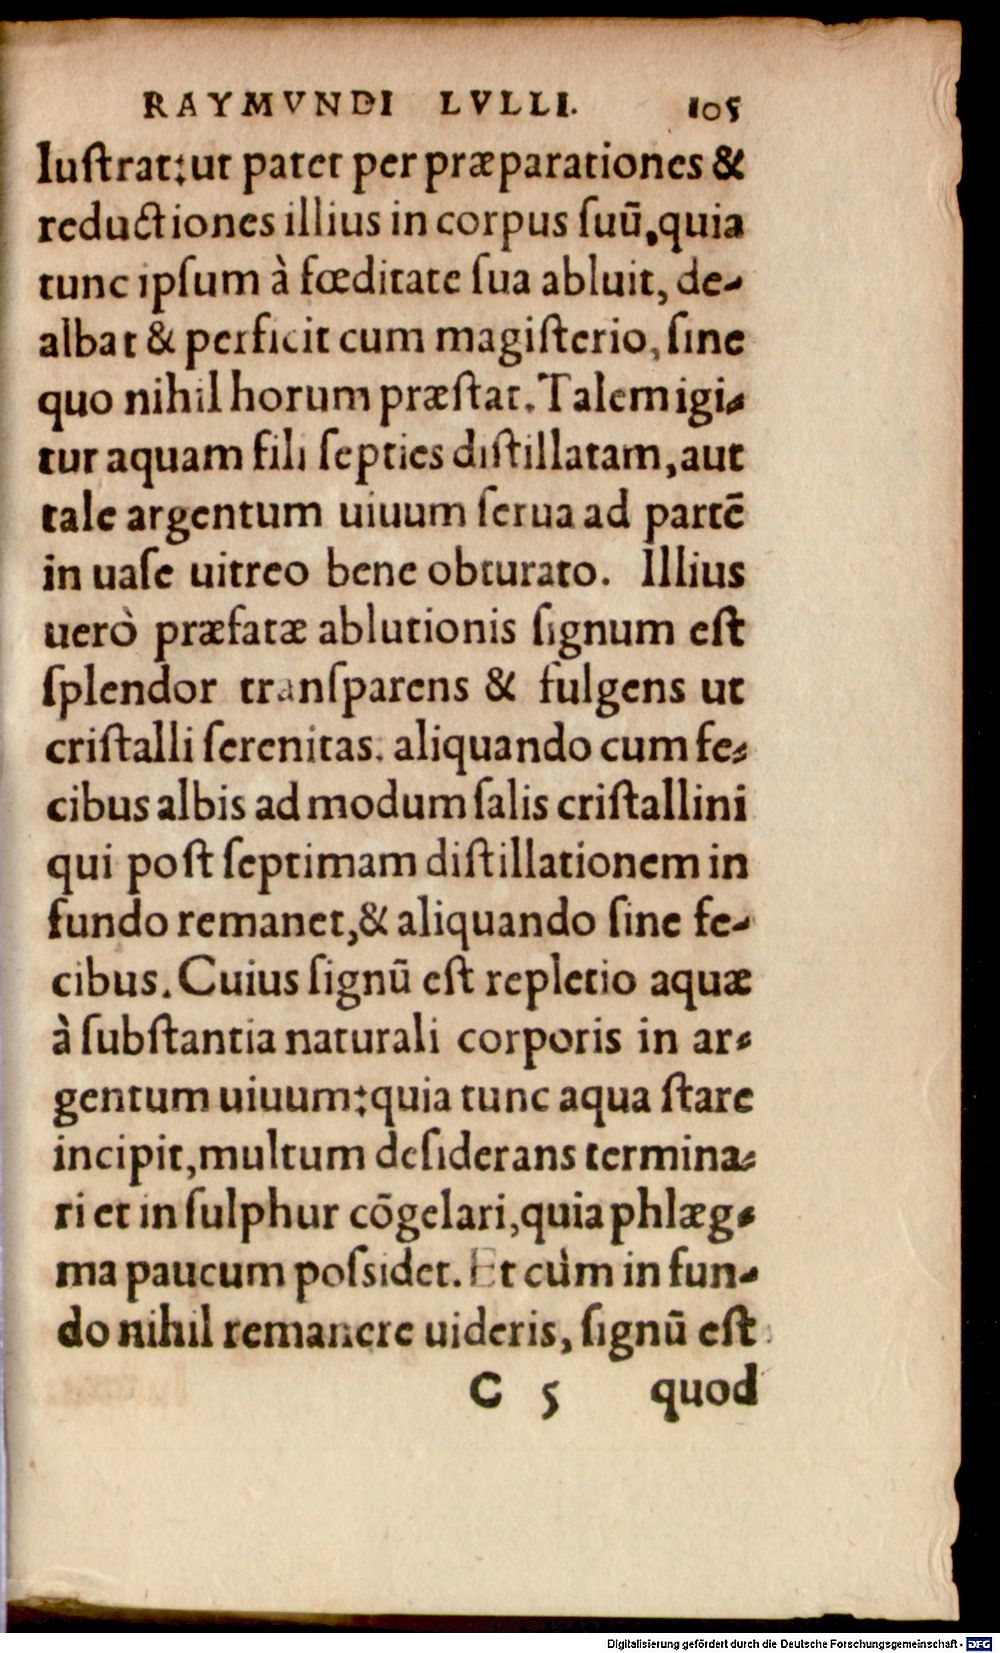 RAYMVNDI LVLLI. 105
Iuſtrat:ut patet per præparationes &
reductiones illius in corpus ſuũ, quia
tunc ipſum à fœditate ſua abluit, de-
albat & perficit cum magiſterio, ſine
quo nihil horum præſtat. Talem igi-
tur aquam fili ſepties diſtillatam, aut
tale argentum uiuum ſerua ad partẽ
in uaſe uitreo bene obturato. Illius
uerò præfatæ ablutionis ſignum eſt
ſplendor tranſparens & fulgens ut
criſtalli ſerenitas. aliquando cum fe-
cibus albis ad modum ſalis criſtallini
qui poſt ſeptimam diſtillationem in
fundo remanet, & aliquando ſine fe-
cibus. Cuius ſignũ eſt repletio aquæ
à ſubſtantia naturali corporis in ar-
gentum uiuum:quia tunc aqua ſtare
incipit, multum deſiderans termina-
ri et in ſulphur cõgelari, quia phlæg-
ma paucum poſsidet. Et cùm in fun-
do nihil remanere uideris, ſignũ eſt
C 5 quod
Digitalisierung gefördert durch die Deutsche Forschungsgemeinschaft - DFG